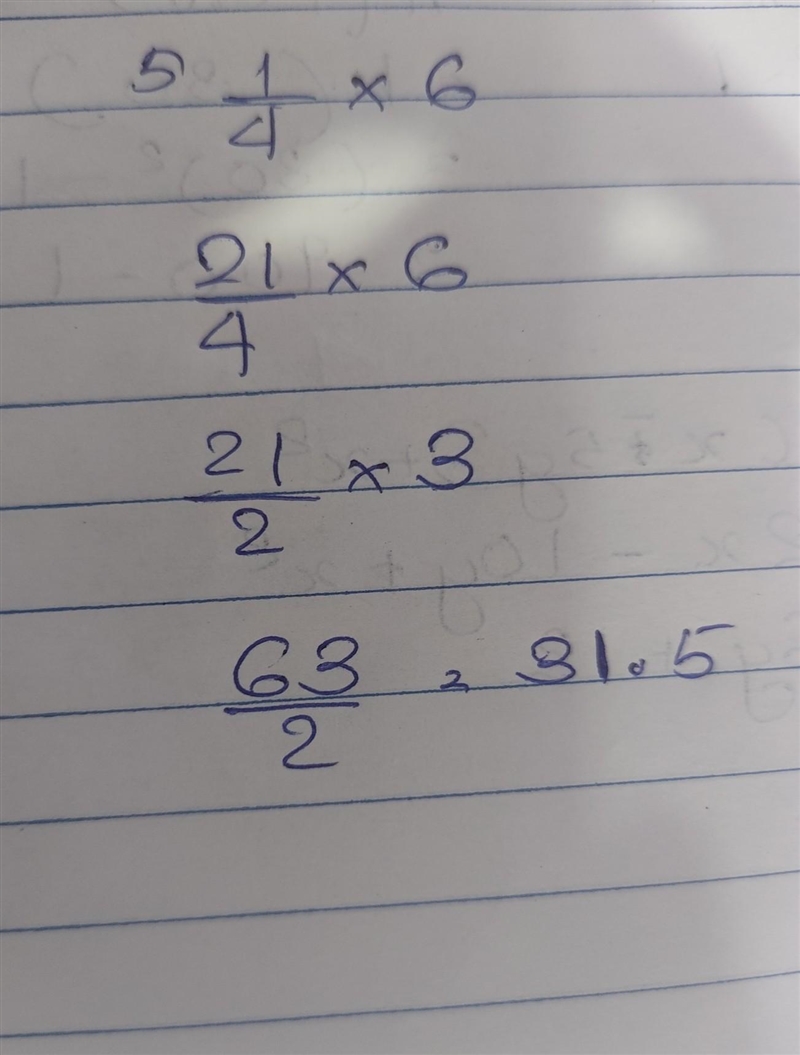 5 1/4 × 6
21/4 × 6
21/2 × 3
63/2 = 31.5